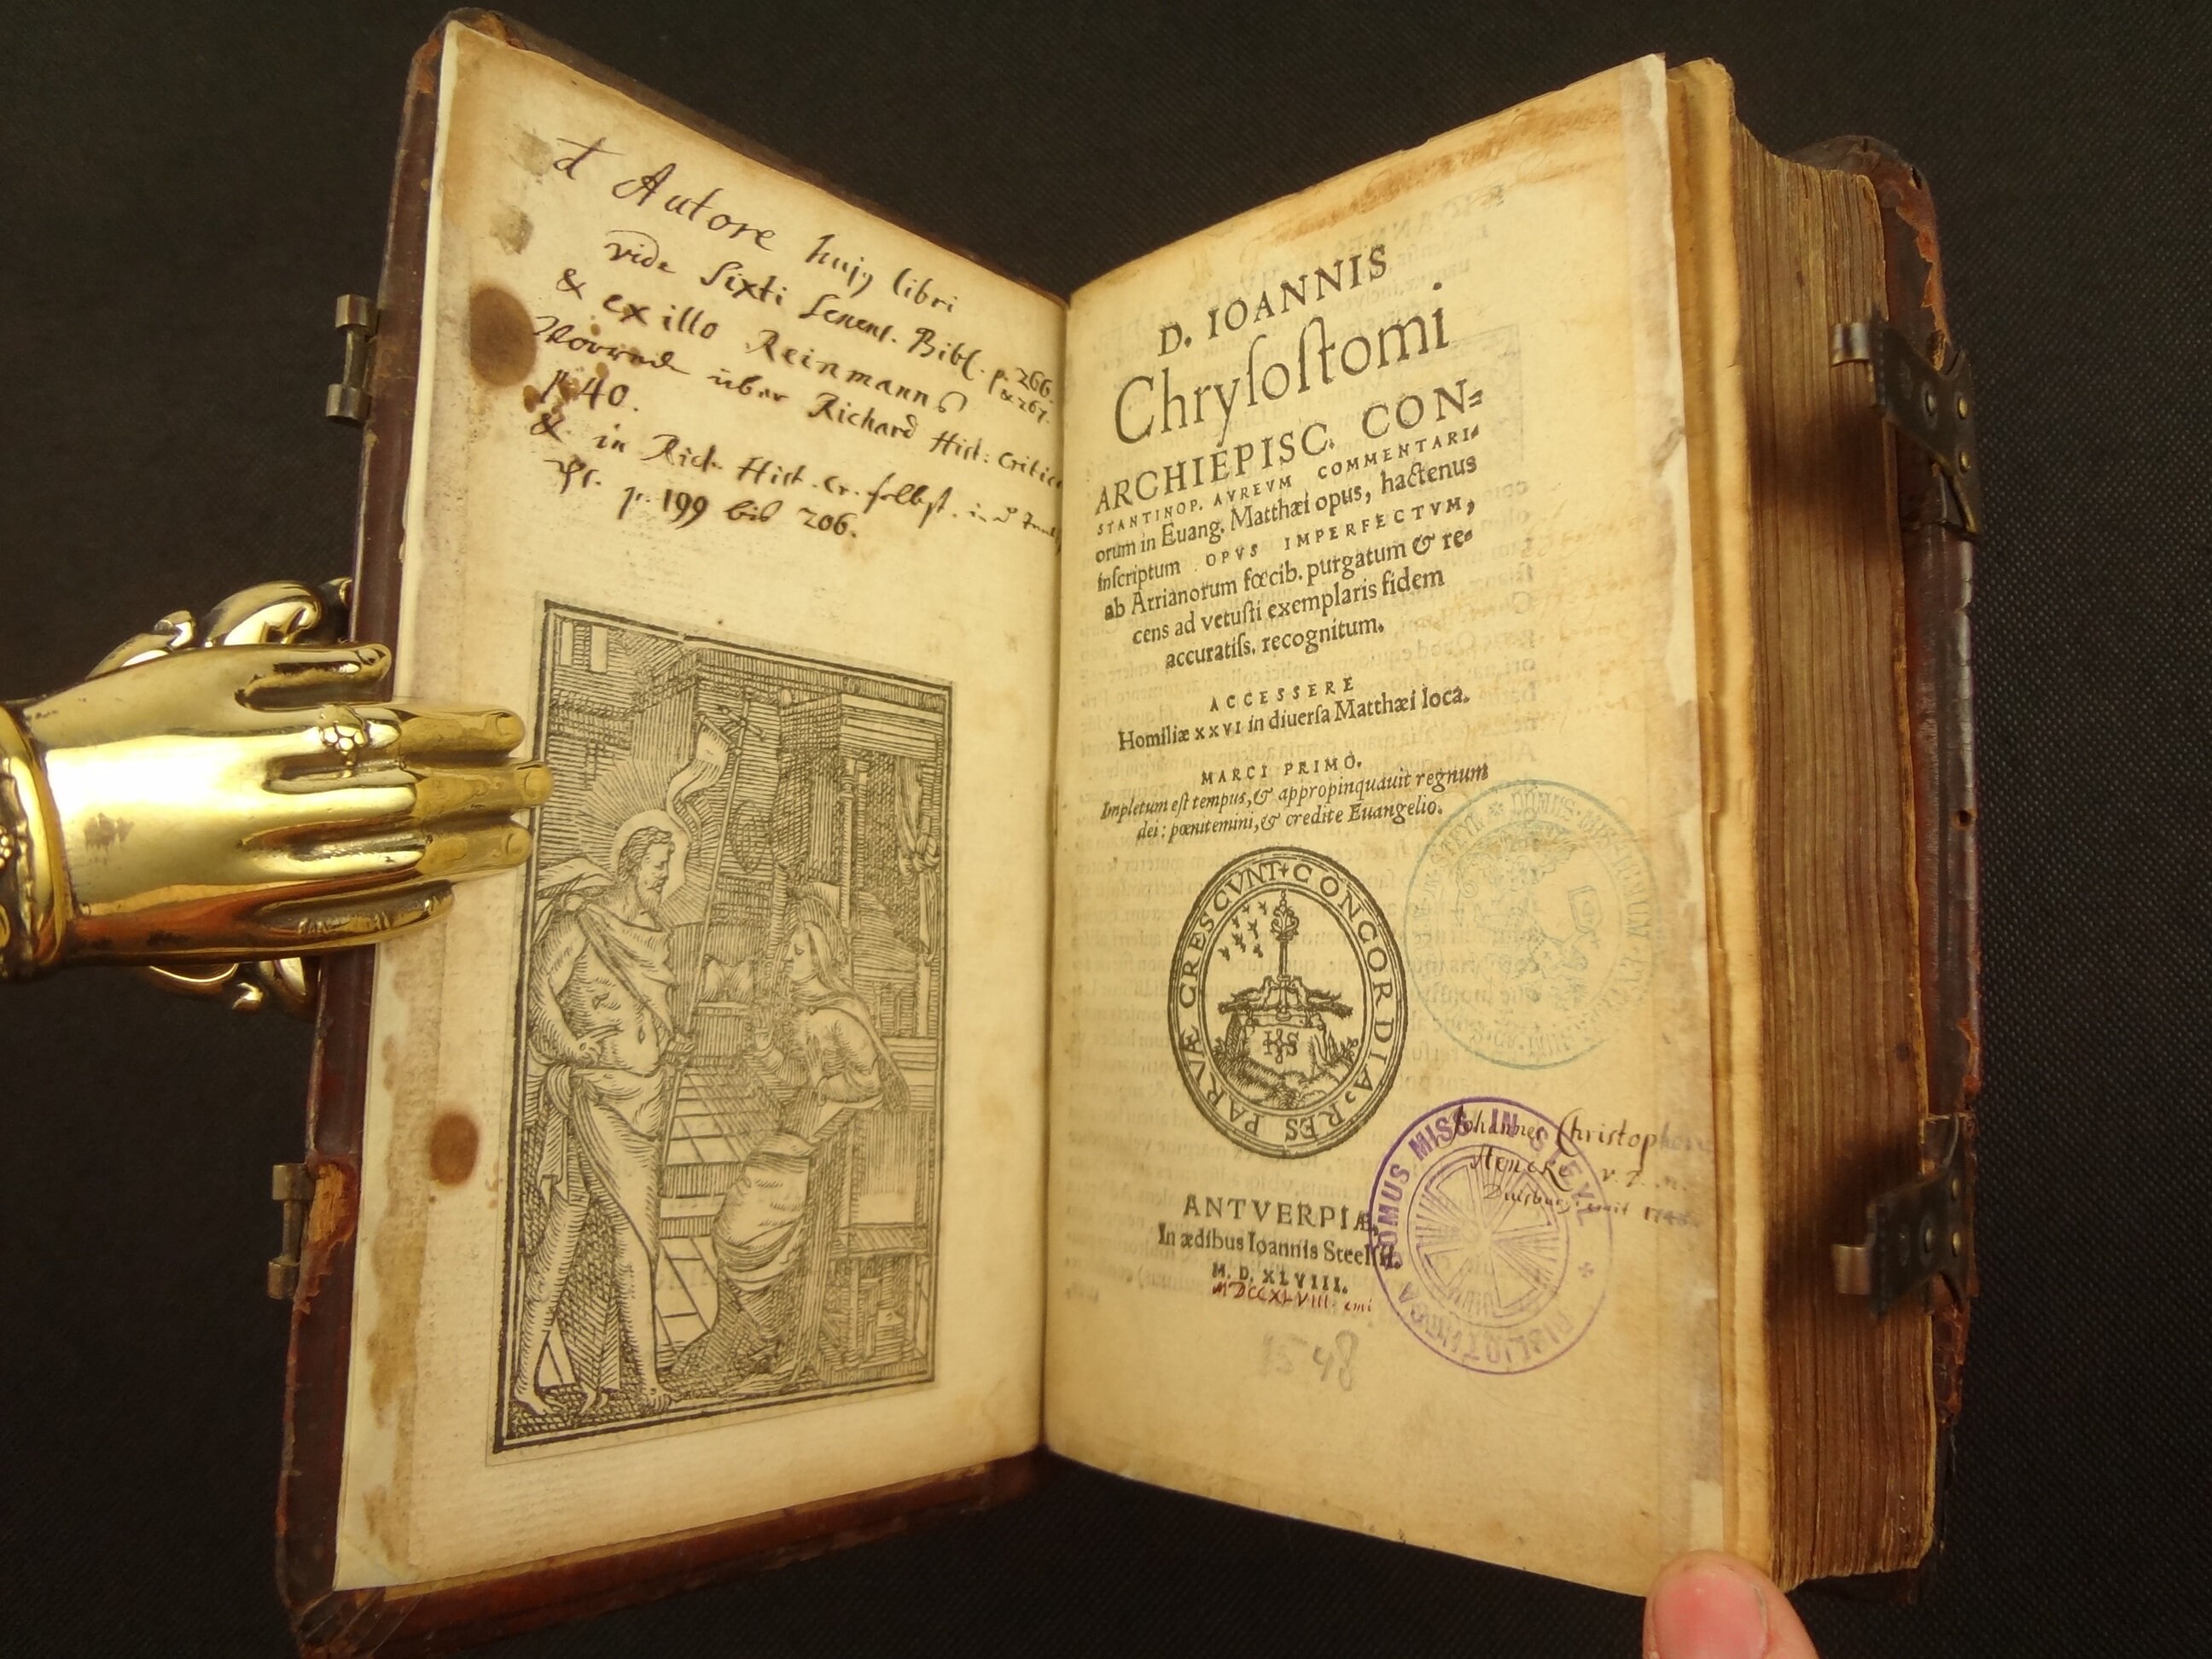 Autore hujq libri
vide Sixti Senens. Bibl. p. 266.
& 267.
& ex illo Reinmanns
über Richard Hist: Critic
p. 40.
& in Rich. Hist. Cr. selbst. in
p. 199 bis 206.
D. IOANNIS
Chryſoſtomi
ARCHIEPISC. CON=
STANTINOP. AVREVM COMMENTARI=
orum in Euang. Matthæi opus, hactenus
inſcriptum OPVS IMPERFECTVM,
ab Arrianorum fœcib. purgatum & re=
cens ad vetuſti exemplaris fidem
accuratiſs. recognitum.
ACCESSERE
Homiliæ XXVI in diuerſa Matthæi loca.
MARCI PRIMO.
Impletum eſt tempus, & appropinquauit regnum
dei: pœnitemini, & credite Euangelio.
CONCORDIA. RES PARVÆ CRESCVNT
IHS
ANTVERPIÆ,
In ædibus Ioannis Steelſii.
M. D. XLVIII.
MDCCXLVIII. emi
1548
Johannes Christophorus
Duisburg
BIBLIOTHECA DOMUS MISS. IN STEYL